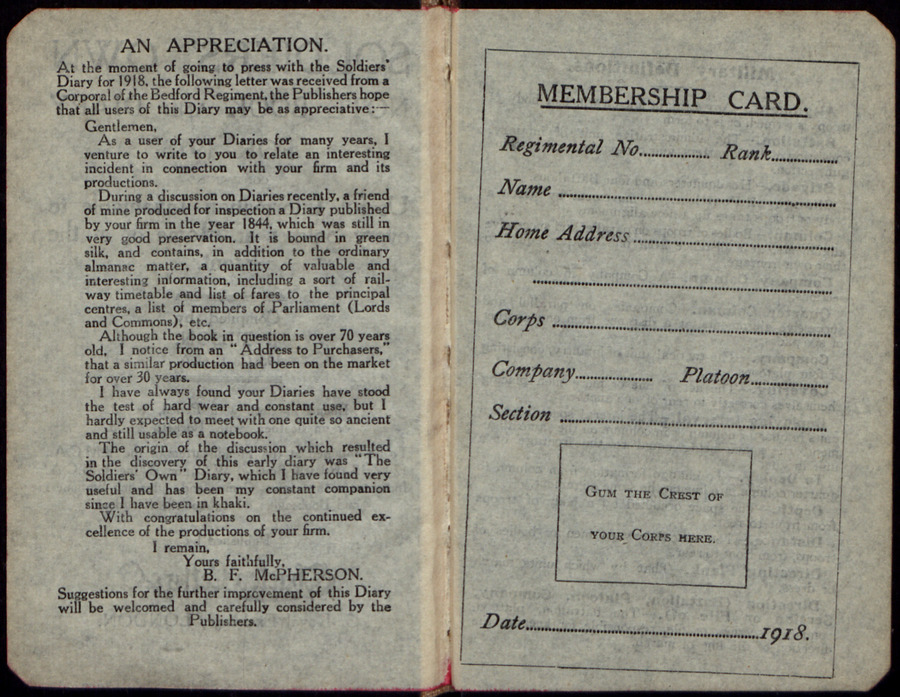 AN APPRECIATION.
At the moment of going to press with the Soldiers'
Diary for 1918, the following letter was received from a
Corporal of the Bedford Regiment, the Publishers hope
that all users of this Diary may be as appreciative:—
Gentlemen,
As a user of your Diaries for many years, I
venture to write to you to relate an interesting
incident in connection with your firm and its
productions.
During a discussion on Diaries recently, a friend
of mine produced for inspection a Diary published
by your firm in the year 1844, which was still in
very good preservation. It is bound in green
silk, and contains, in addition to the ordinary
almanac matter, a quantity of valuable and
interesting information, including a sort of rail-
way timetable and list of fares to the principal
centres, a list of members of Parliament (Lords
and Commons), etc.
Although the book in question is over 70 years
old, I notice from an "Address to Purchasers,"
that a similar production had been on the market
for over 30 years.
I have always found your Diaries have stood
the test of hard wear and constant use, but I
hardly expected to meet with one quite so ancient
and still usable as a notebook.
The origin of the discussion which resulted
in the discovery of this early diary was "The
Soldiers' Own" Diary, which I have found very
useful and has been my constant companion
since I have been in khaki.
With congratulations on the continued ex-
cellence of the productions of your firm.
I remain,
Yours faithfully,
B. F. McPHERSON.
Suggestions for the further improvement of this Diary
will be welcomed and carefully considered by the
Publishers.
MEMBERSHIP CARD.
Regimental No.................. Rank.................
Name
Home Address
Corps
Company................... Platoon...................
Section
GUM THE CREST OF
YOUR CORPS HERE.
Date............................................................1918.